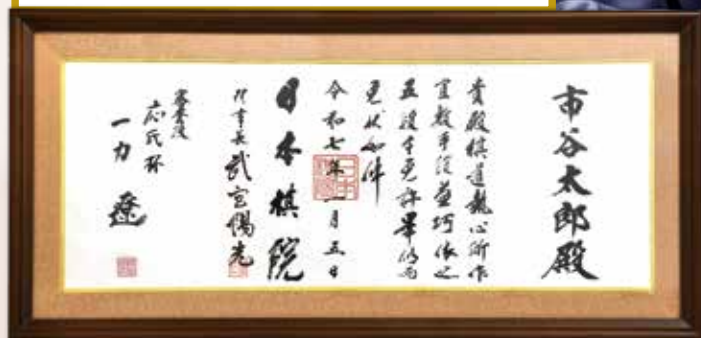 市谷太郎殿
貴殿棋道執心所作
宜敷手段益巧依之
五段令免許畢仍而
免状如件
令和七年一月五日
日本棋院
理事長 武宮陽光
審査役
応氏杯
一力遼